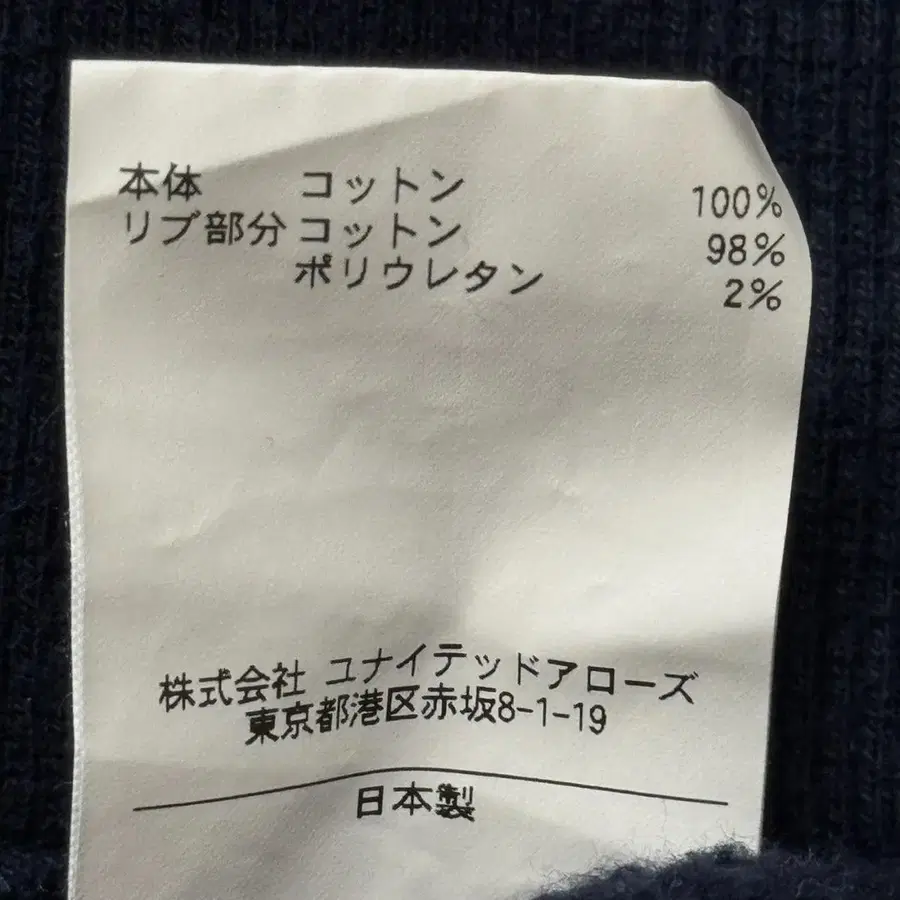 本体 コットン 100%
リブ部分 コットン 98%
ポリウレタン 2%
株式会社 ユナイテッドアローズ
東京都港区赤坂8-1-19
日本製